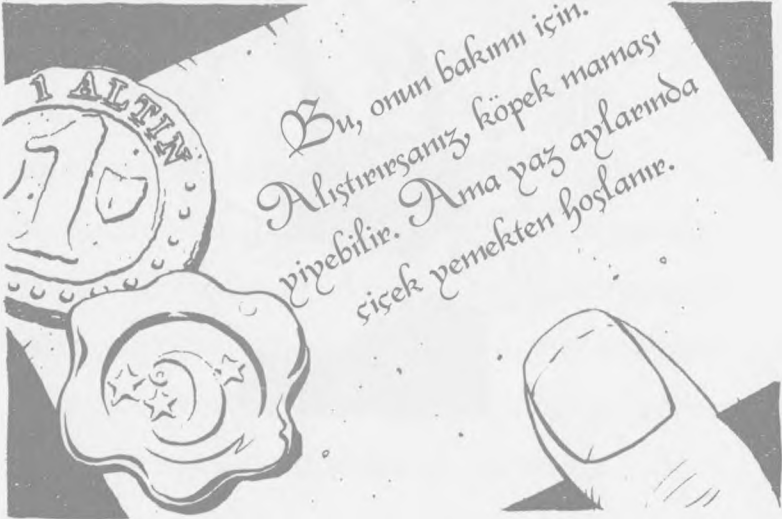 1 ALTIN
1
Bu, onun bakımı için.
Alıştırırsanız, köpek maması
yiyebilir. Ama yaz aylarında
çiçek yemekten hoşlanır.